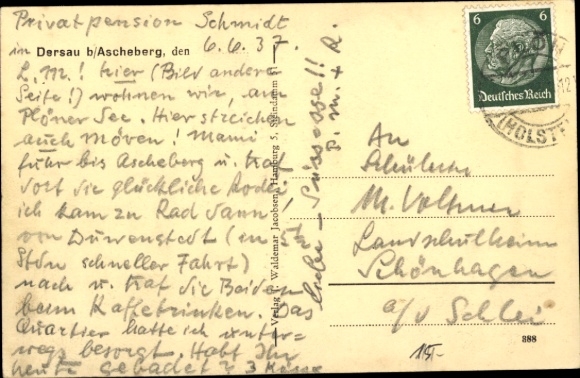 Privatpension Schmidt
in Dersau b/Ascheberg, den 6.6.37.
L. M.! Hier (Bild andere
Seite!) wohnen wir, am
Plöner See. Hier streichen
auch Möven! Mami
fuhr bis Ascheberg u. traf
dort die glückliche
ich kam zu Rad dann,
von Duvenstedt (in 5½
Stdn schneller Fahrt)
nach u. traf die Beiden
beim Kaffetrinken. Das
Quartier hatte ich unter-
wegs besorgt. Habt Ihr
heute gebadet? 3 Küsse
liebe - Süsse!!
P. M. + R.
Verlag J. Waldemar Jacobsen, Hamburg 5, Steindamm
6 6
Deutsches Reich
PLÖN
12
(HOLSTE
An
Schülerin
M. Voltmer
Landschulheim
Schönhagen
a/d Schlei
888
15,-